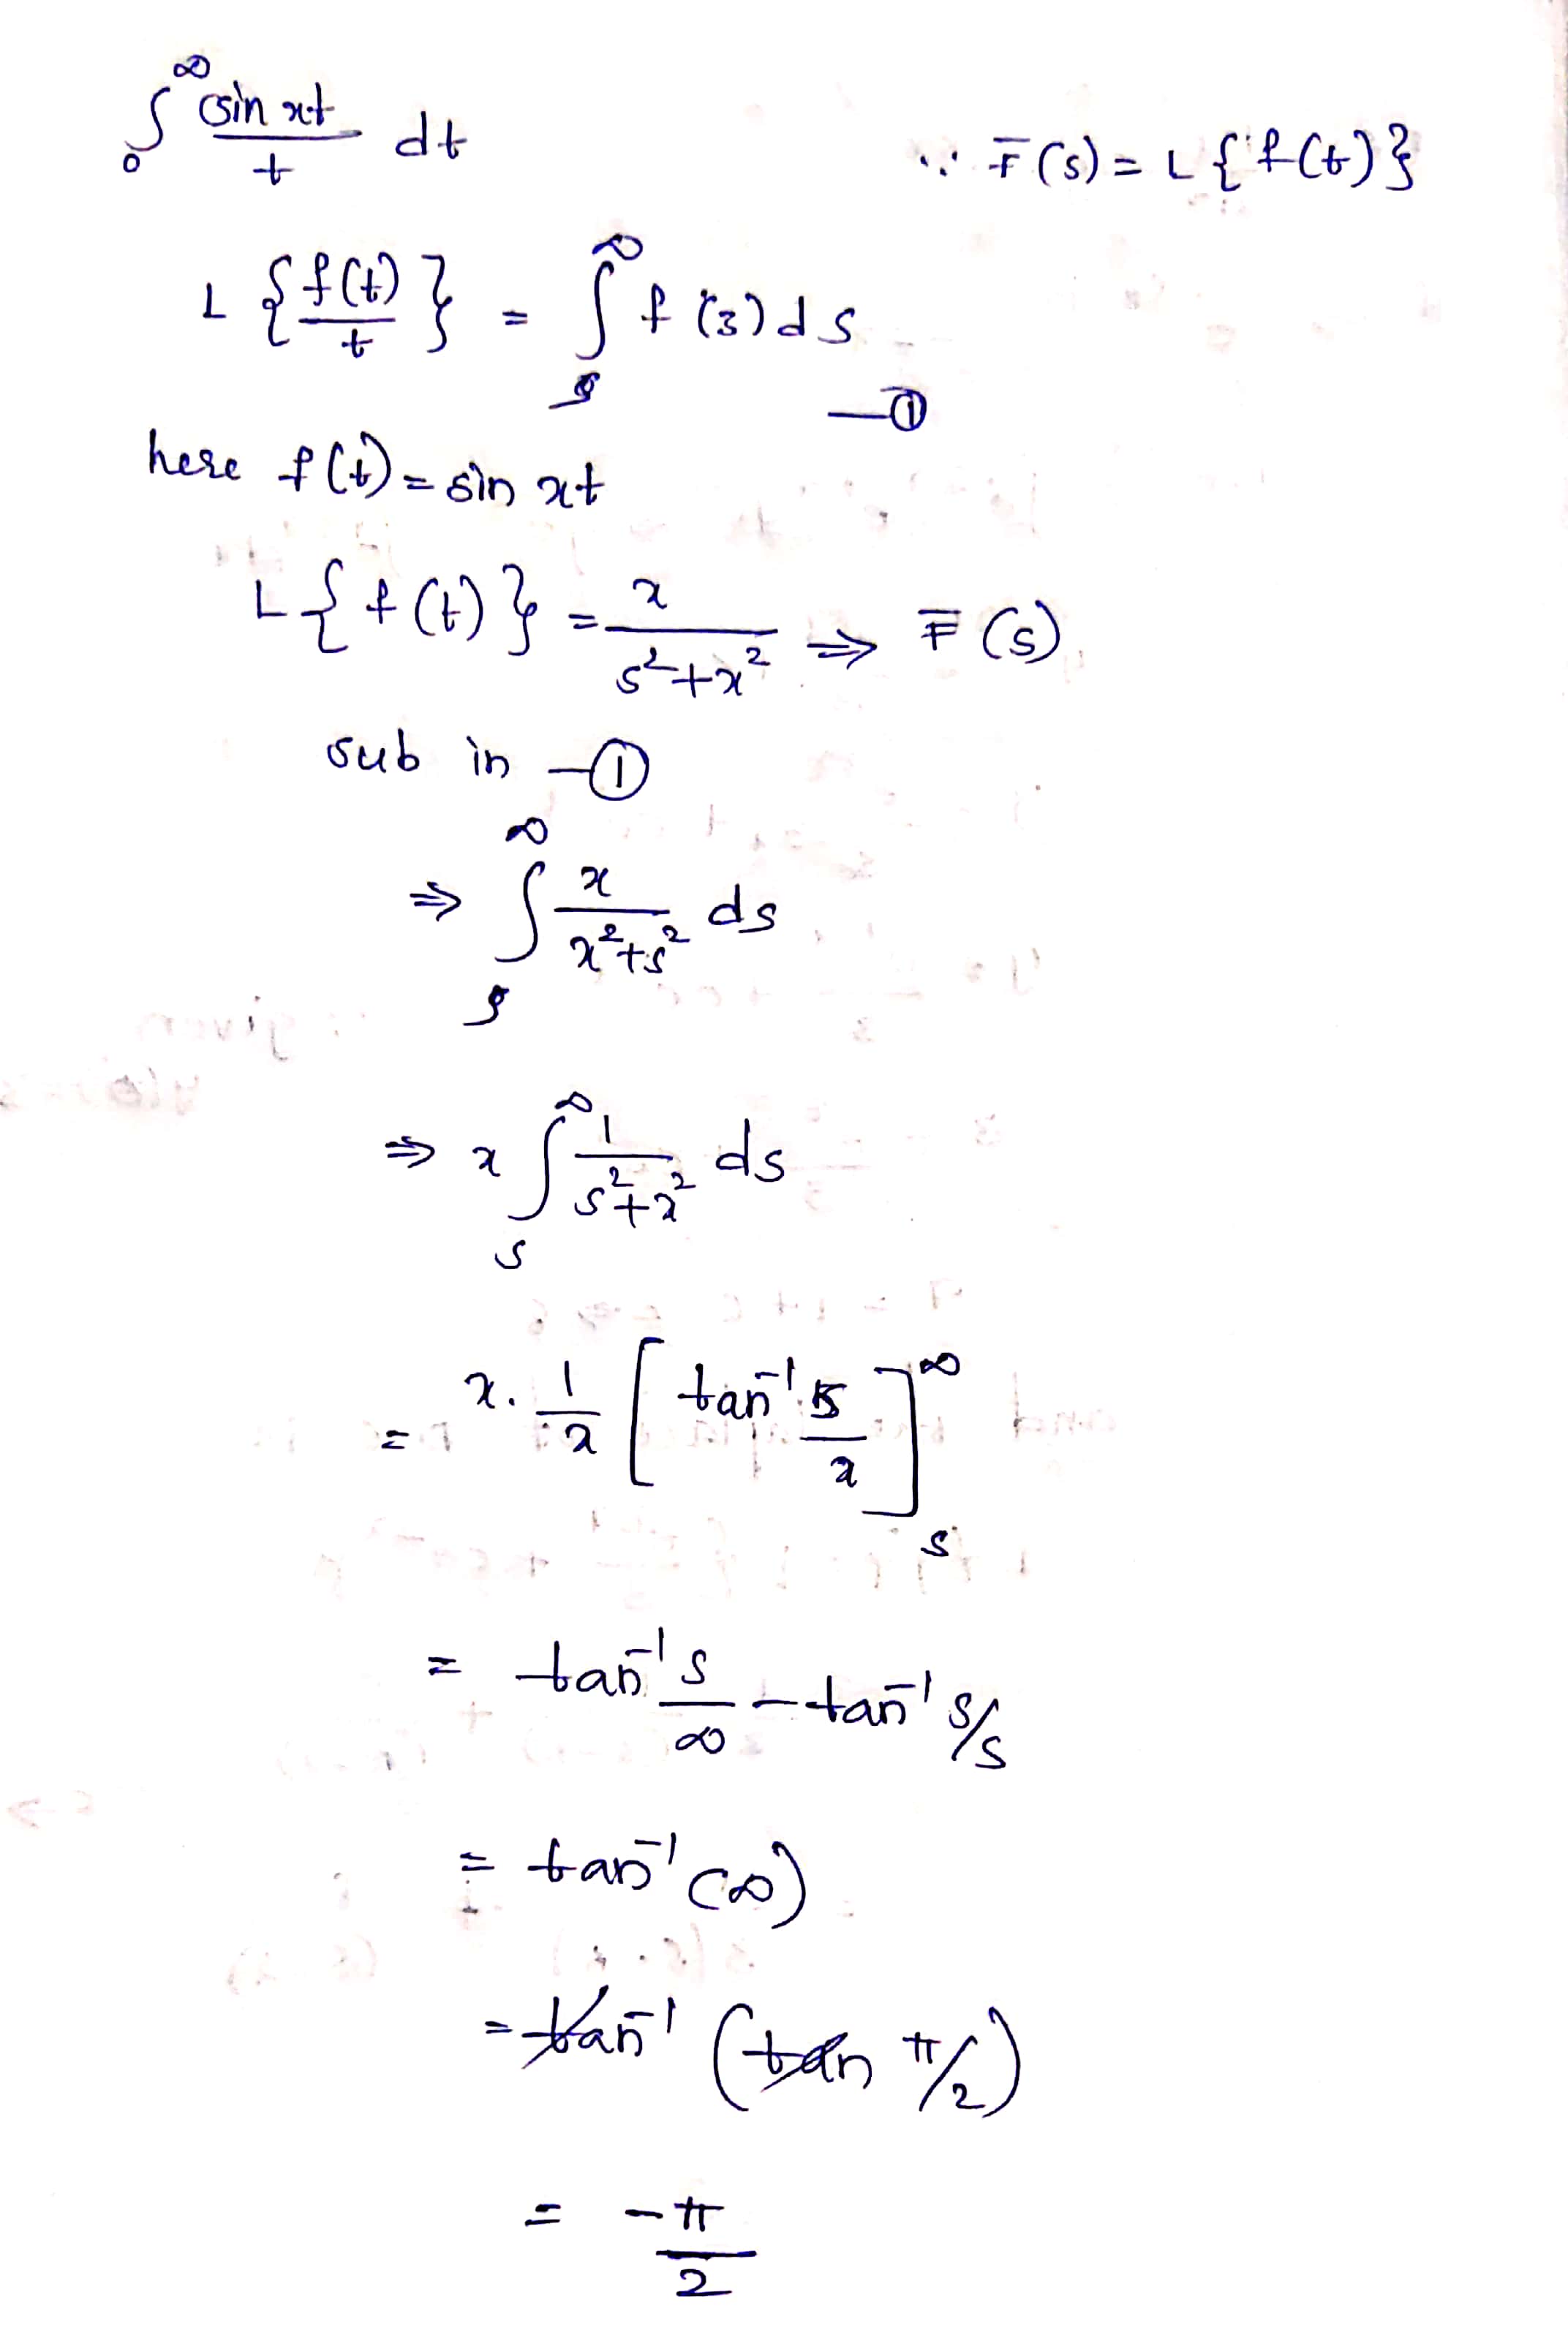 ∫₀^∞ sin xt / t dt    ∵ F̄(s) = L{f(t)}
L{f(t)/t} = ∫ₛ^∞ f(s) ds —①
here f(t) = sin xt
L{f(t)} = x/(s²+x²) ⇒ F̄(s)
sub in —①
⇒ ∫ₛ^∞ x/(x²+s²) ds
⇒ x ∫ₛ^∞ 1/(s²+x²) ds
= x · 1/x [tan⁻¹ s/x]ₛ^∞
= tan⁻¹ s/∞ − tan⁻¹ s/s
= tan⁻¹(∞)
= tan⁻¹(tan π/2)
= −π/2